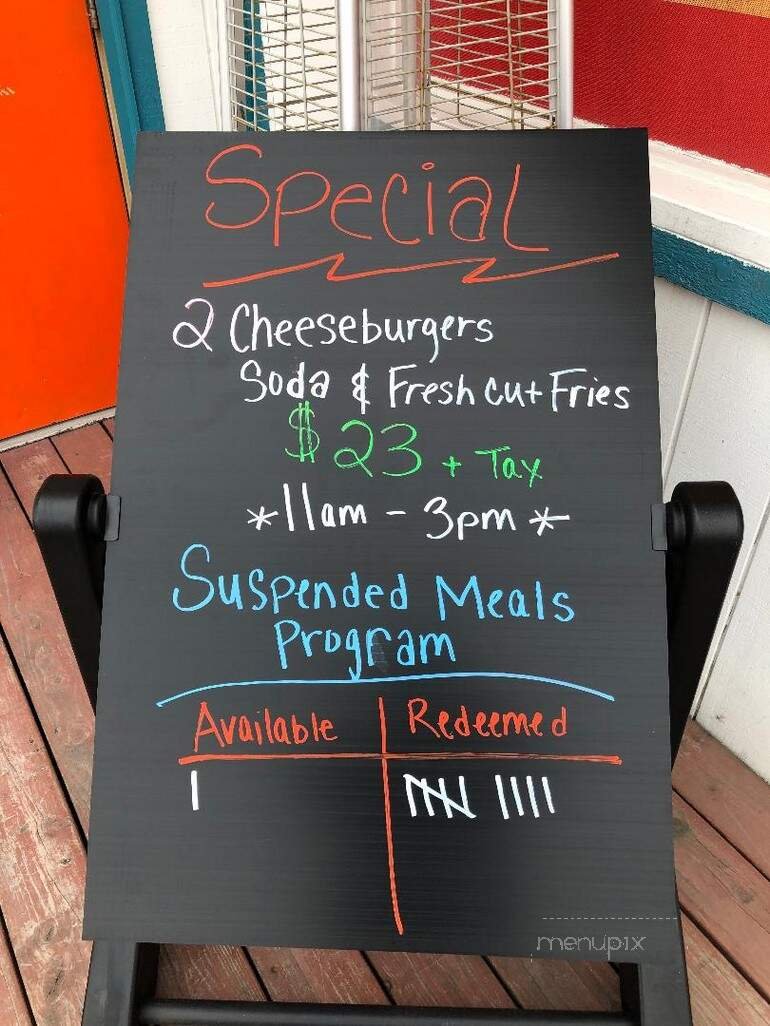 Special
2 Cheeseburgers
Soda & Fresh cut Fries
$23 + Tax
*11am - 3pm*
Suspended Meals
Program
Available | Redeemed
| 𝍸 ||||
menupix